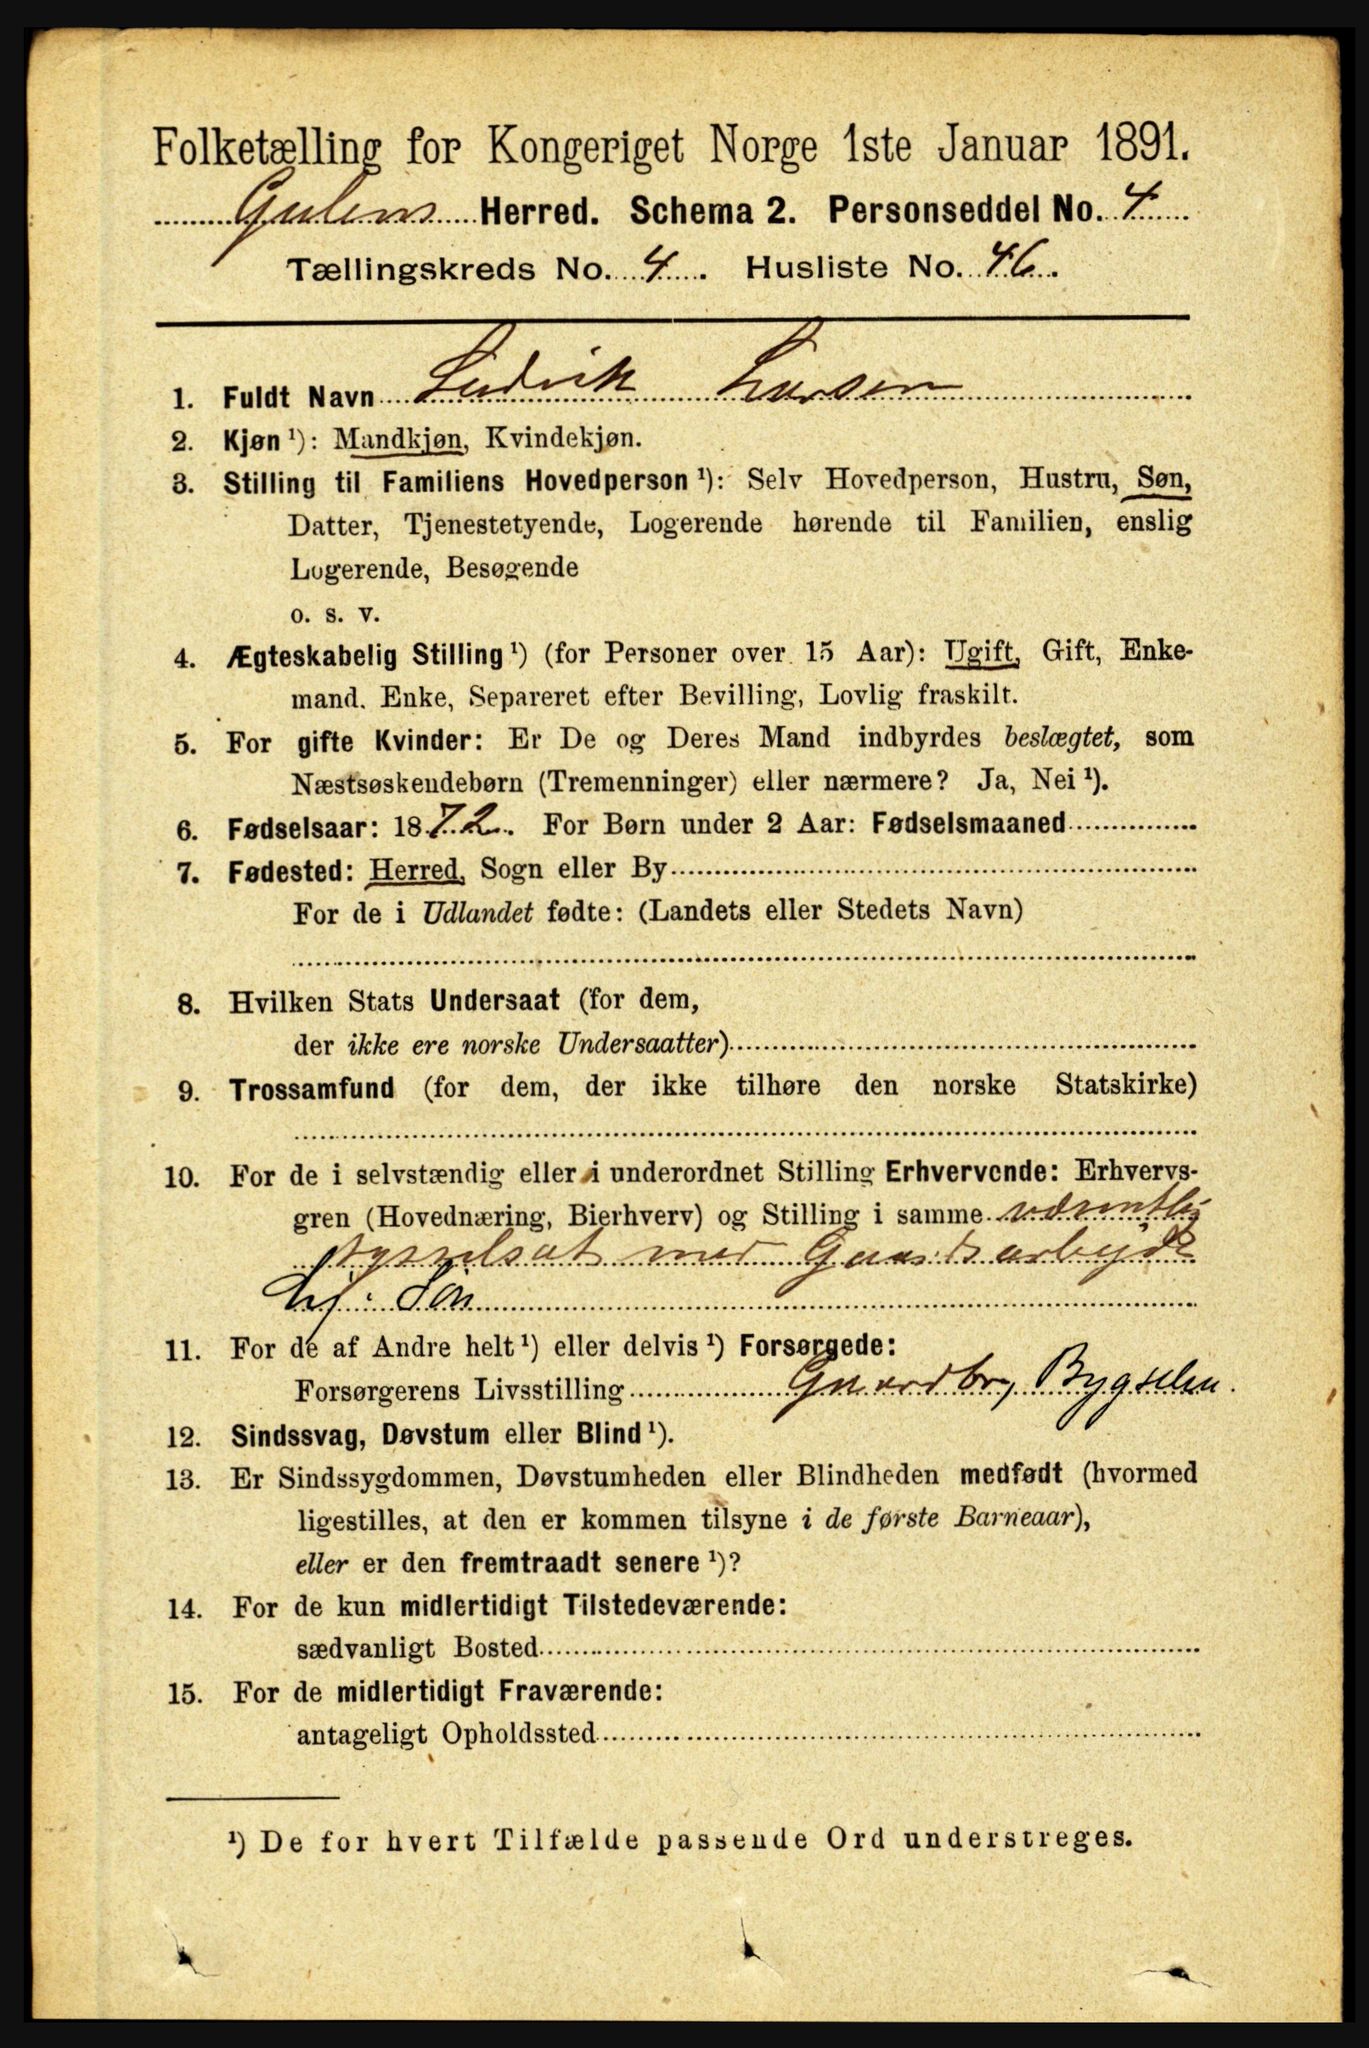 Folketælling for Kongeriget Norge 1ste Januar 1891.
Gulens Herred. Schema 2. Personseddel No. 4
Tællingskreds No. 4. Husliste No. 46.
1. Fuldt Navn Ludvik Larsen
2. Kjøn ¹): Mandkjøn, Kvindekjøn.
3. Stilling til Familiens Hovedperson ¹): Selv Hovedperson, Hustru, Søn,
Datter, Tjenestetyende, Logerende hørende til Familien, enslig
Logerende, Besøgende
o. s. v.
4. Ægteskabelig Stilling ¹) (for Personer over 15 Aar): Ugift, Gift, Enke-
mand. Enke, Separeret efter Bevilling, Lovlig fraskilt.
5. For gifte Kvinder: Er De og Deres Mand indbyrdes beslægtet, som
Næstsøskendebørn (Tremenninger) eller nærmere? Ja, Nei ¹).
6. Fødselsaar: 1872. For Børn under 2 Aar: Fødselsmaaned
7. Fødested: Herred, Sogn eller By
For de i Udlandet fødte: (Landets eller Stedets Navn)
8. Hvilken Stats Undersaat (for dem,
der ikke ere norske Undersaatter)
9. Trossamfund (for dem, der ikke tilhøre den norske Statskirke)
10. For de i selvstændig eller i underordnet Stilling Erhvervende: Erhvervs-
gren (Hovednæring, Bierhverv) og Stilling i samme væsentlig
sysselsat med Gaardsarbejde
hj: Søn
11. For de af Andre helt ¹) eller delvis ¹) Forsørgede:
Forsørgerens Livsstilling Gaardbr, Bygselm.
12. Sindssvag, Døvstum eller Blind ¹).
13. Er Sindssygdommen, Døvstumheden eller Blindheden medfødt (hvormed
ligestilles, at den er kommen tilsyne i de første Barneaar),
eller er den fremtraadt senere ¹)?
14. For de kun midlertidigt Tilstedeværende:
sædvanligt Bosted
15. For de midlertidigt Fraværende:
antageligt Opholdssted
¹) De for hvert Tilfælde passende Ord understreges.